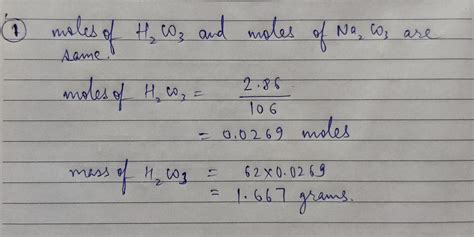 ① moles of H₂CO₃ and moles of Na₂CO₃ are
same.
moles of H₂CO₃ = 2.86 / 106
= 0.0269 moles
mass of H₂CO₃ = 62×0.0269
= 1.667 grams.